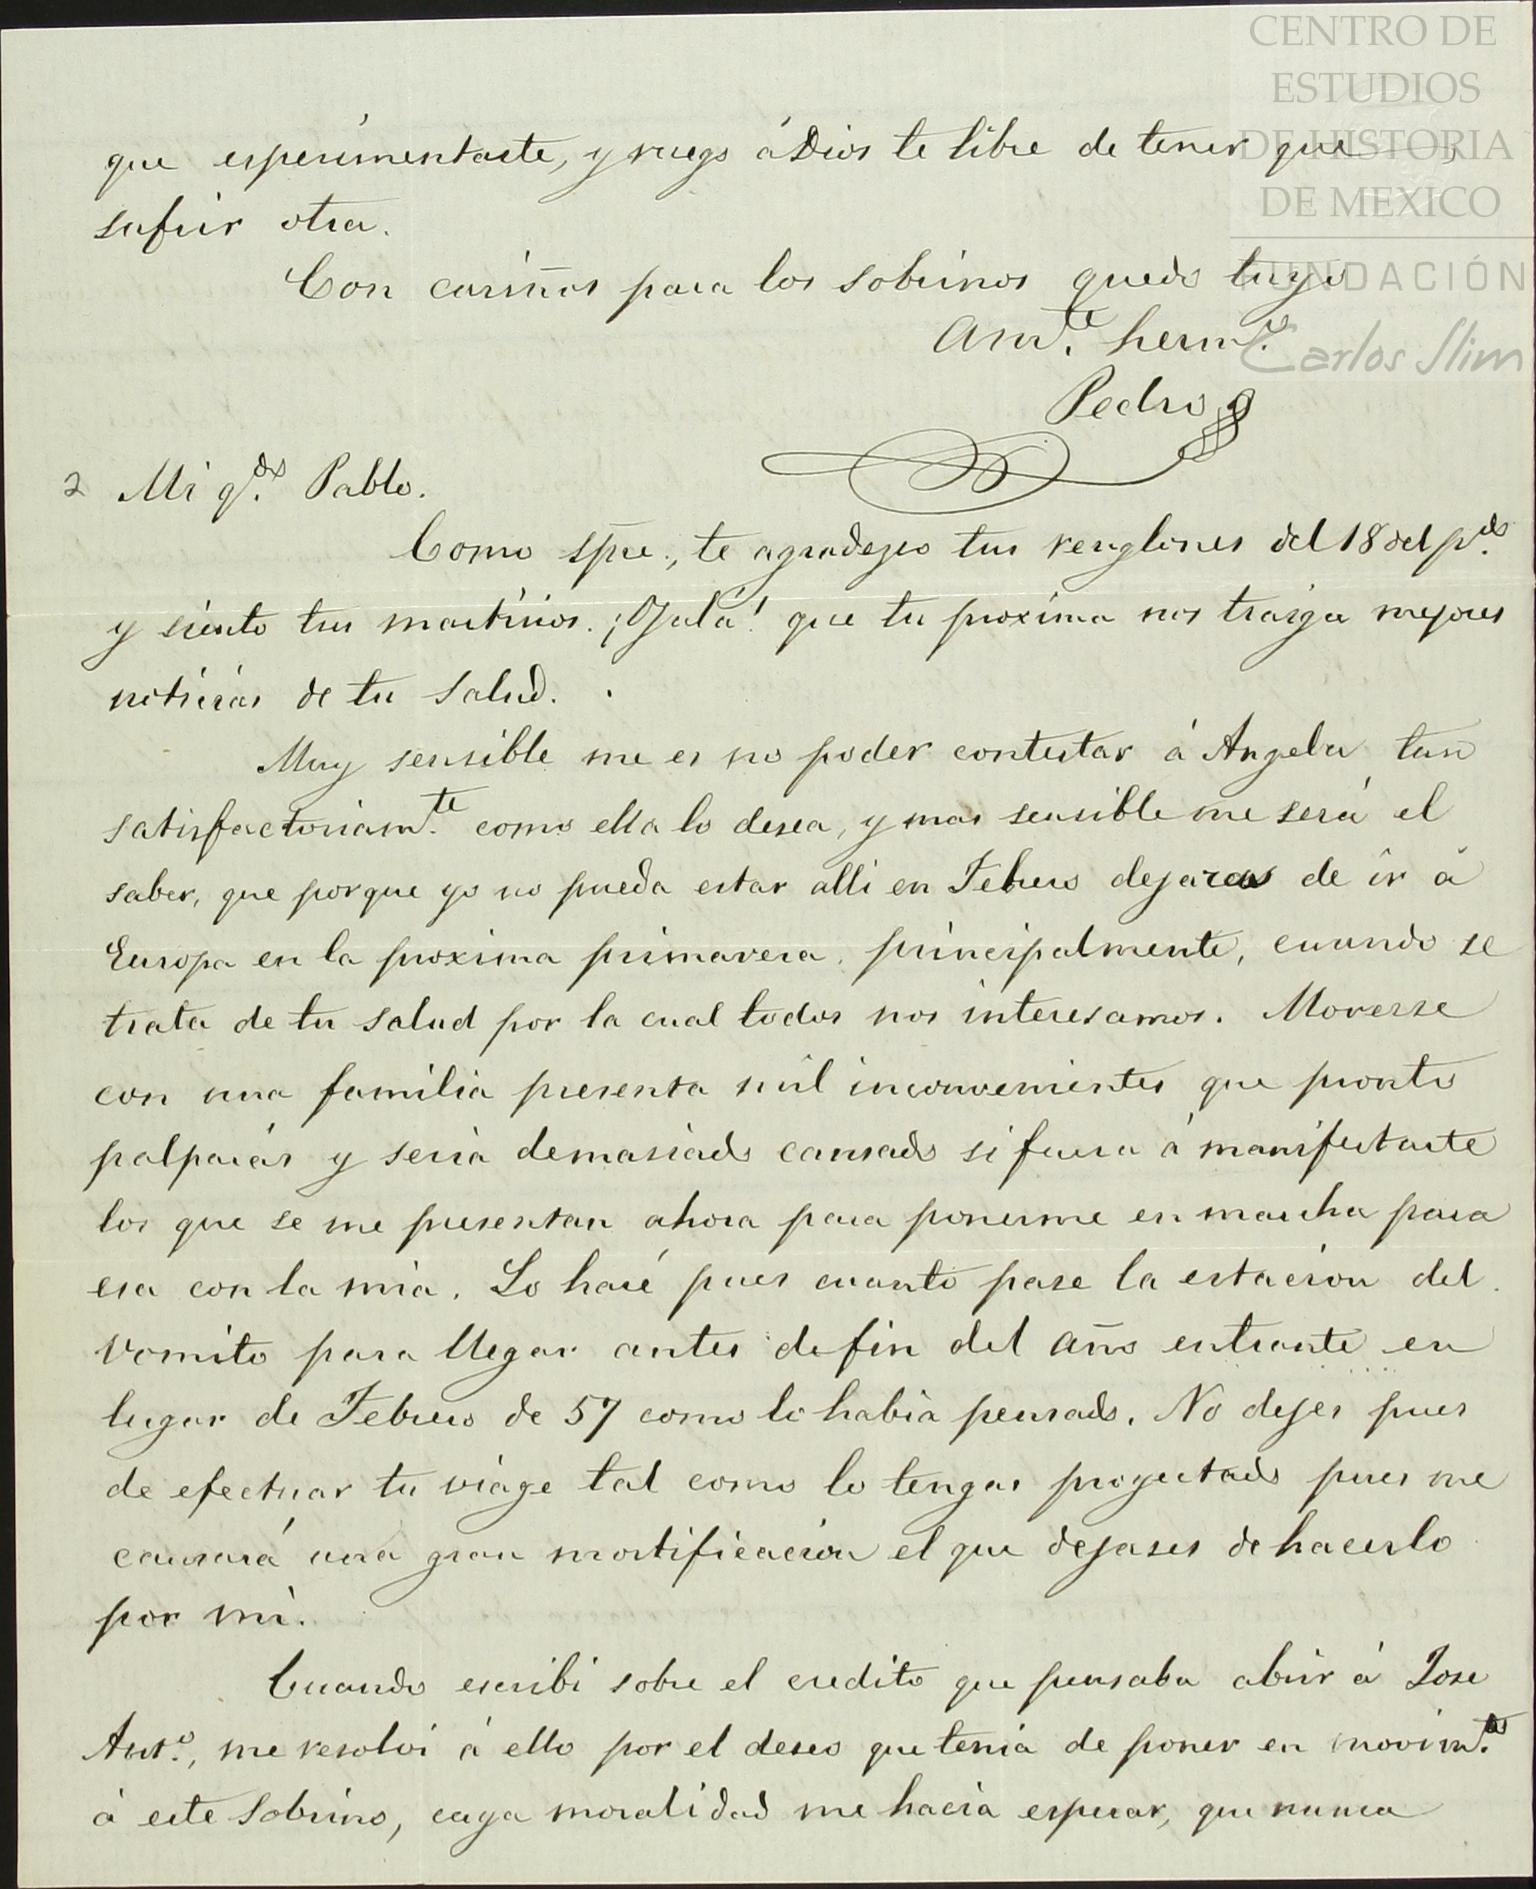 CENTRO DE
ESTUDIOS
DE HISTORIA
DE MEXICO
FUNDACIÓN
Carlos Slim
que esperimentaste, y ruego á Dios te libre de tener que
sufrir otra.
Con cariños para los sobrinos quedo tuyo
Amte. hermo.
Pedro
2 Mi qdo. Pablo.
Como spre., te agradezco tus renglones del 18 del pdo.
y siento tus martirios. ¡Ojalá! que tu proxima nos traiga mejores
noticias de tu salud.
Muy sensible me es no poder contestar á Angela tan
satisfactoriamte. como ella lo desea, y mas sensible me será el
saber, que porque yo no pueda estar alli en Febrero dejaras de ir á
Europa en la proxima primavera, principalmente, cuando se
trata de tu salud por la cual todos nos interesamos. Moverse
con una familia presenta mil inconvenientes que pronto
palparás y seria demasiado cansado si fuera á manifestarte
los que se me presentan ahora para ponerme en marcha para
esa con la mia. Lo haré pues cuanto pase la estacion del
vomito para llegar antes de fin del año entrante en
lugar de Febrero de 57 como lo habia pensado. No dejes pues
de efectuar tu viage tal como lo tengas proyectado pues me
causará una gran mortificacion el que dejases de hacerlo
por mi.
Cuando escribi sobre el credito que pensaba abrir á Jose
Anto., me resolvi á ello por el deseo que tenia de poner en movimto.
á este sobrino, cuya moralidad me hacia esperar, que nunca